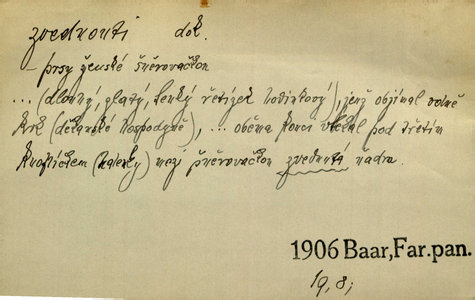 zvednouti dok.
– prsy ženské šněrovačkou
... (dlouhý, zlatý, tenký řetízek hodinkový), jenž objímal volně
krk (děkanské hospodyně), ... oběma konci vbíhal pod třetím
knoflíčkem (halenky) mezi šněrovačkou zvednutá ňadra.
1906 Baar, Far. pan.
19, 8;